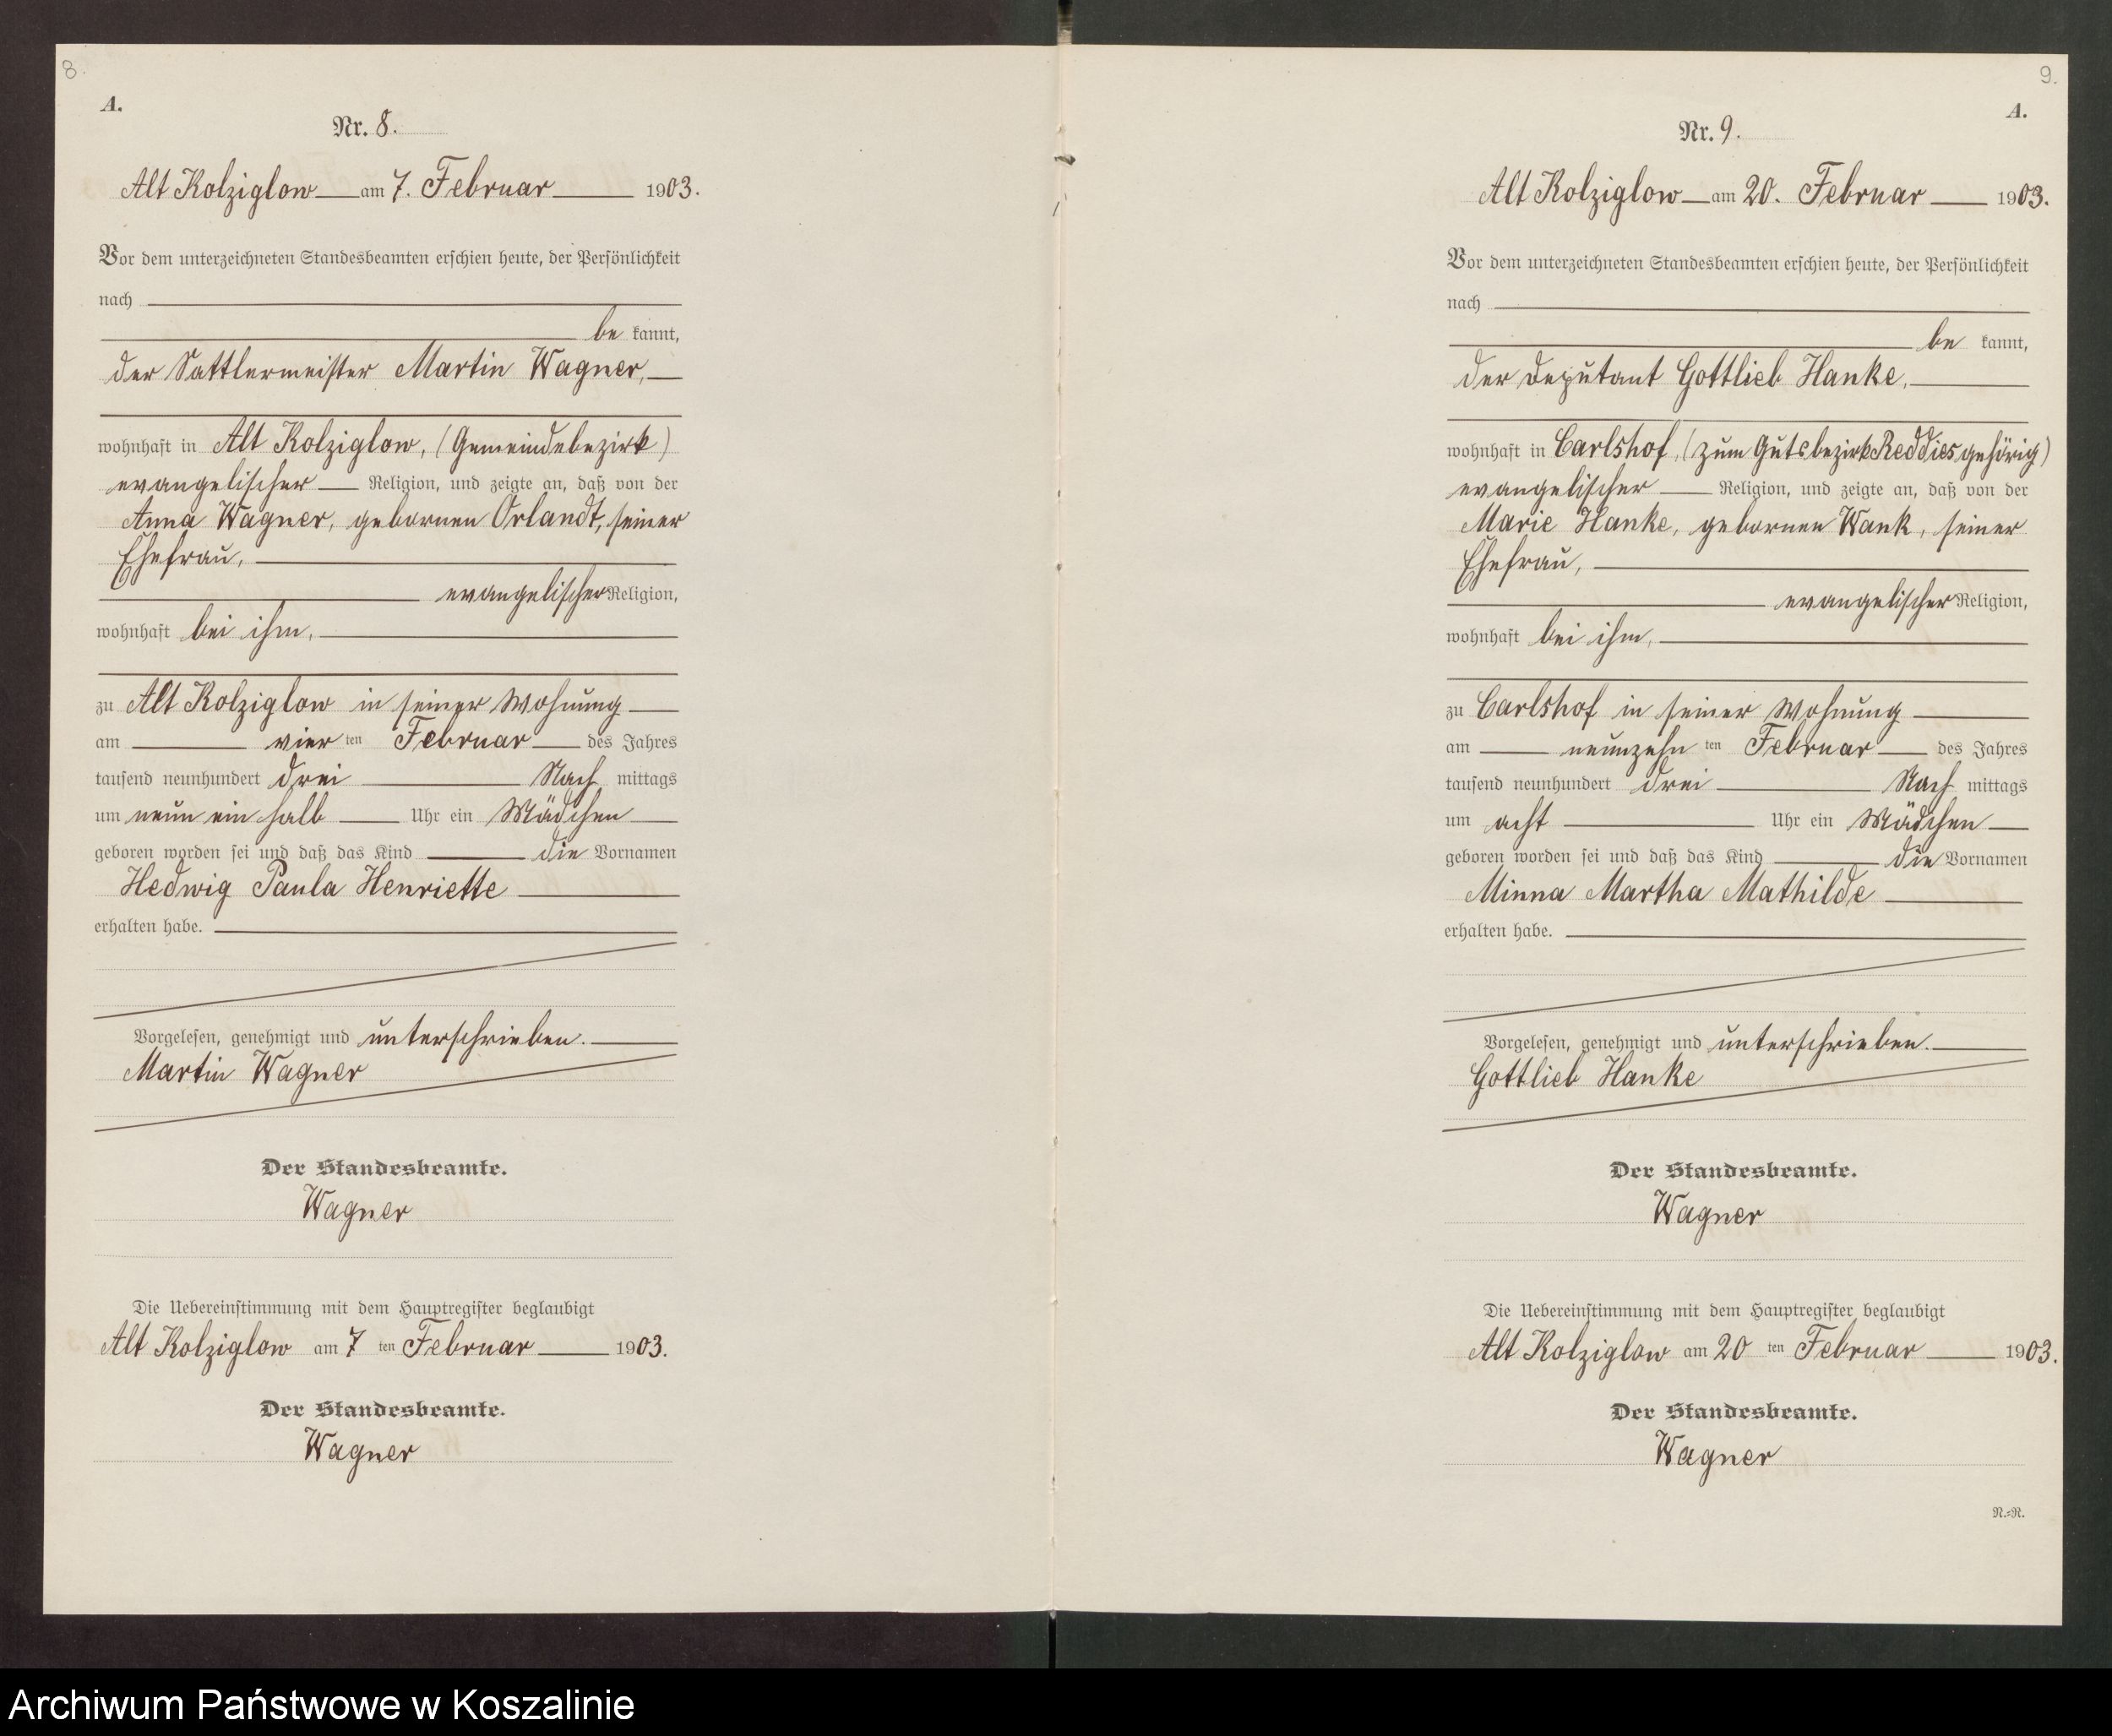 8.
A.
Nr. 8.
Alt Kolziglow am 7. Februar 1903.
Vor dem unterzeichneten Standesbeamten erschien heute, der Persönlichkeit
nach
be kannt,
der Sattlermeister Martin Wagner,
wohnhaft in Alt Kolziglow, (Gemeindebezirk)
evangelischer Religion, und zeigte an, daß von der
Anna Wagner, gebornen Orlandt, seiner
Ehefrau,
evangelischer Religion,
wohnhaft bei ihm,
zu Alt Kolziglow in seiner Wohnung
am vier ten Februar des Jahres
tausend neunhundert drei Nach mittags
um neun ein halb Uhr ein Mädchen
geboren worden sei und daß das Kind die Vornamen
Hedwig Paula Henriette
erhalten habe.
Vorgelesen, genehmigt und unterschrieben.
Martin Wagner
Der Standesbeamte.
Wagner
Die Uebereinstimmung mit dem Hauptregister beglaubigt
Alt Kolziglow am 7 ten Februar 1903.
Der Standesbeamte.
Wagner
9.
A.
Nr. 9.
Alt Kolziglow am 20. Februar 1903.
Vor dem unterzeichneten Standesbeamten erschien heute, der Persönlichkeit
nach
be kannt,
der Deputant Gottlieb Hanke,
wohnhaft in Carlshof, (zum Gutsbezirk Reddies gehörig)
evangelischer Religion, und zeigte an, daß von der
Marie Hanke, gebornen Wank, seiner
Ehefrau,
evangelischer Religion,
wohnhaft bei ihm,
zu Carlshof in seiner Wohnung
am neunzehn ten Februar des Jahres
tausend neunhundert drei Nach mittags
um acht Uhr ein Mädchen
geboren worden sei und daß das Kind die Vornamen
Minna Martha Mathilde
erhalten habe.
Vorgelesen, genehmigt und unterschrieben.
Gottlieb Hanke
Der Standesbeamte.
Wagner
Die Uebereinstimmung mit dem Hauptregister beglaubigt
Alt Kolziglow am 20 ten Februar 1903.
Der Standesbeamte.
Wagner
N.=R.
Archiwum Państwowe w Koszalinie